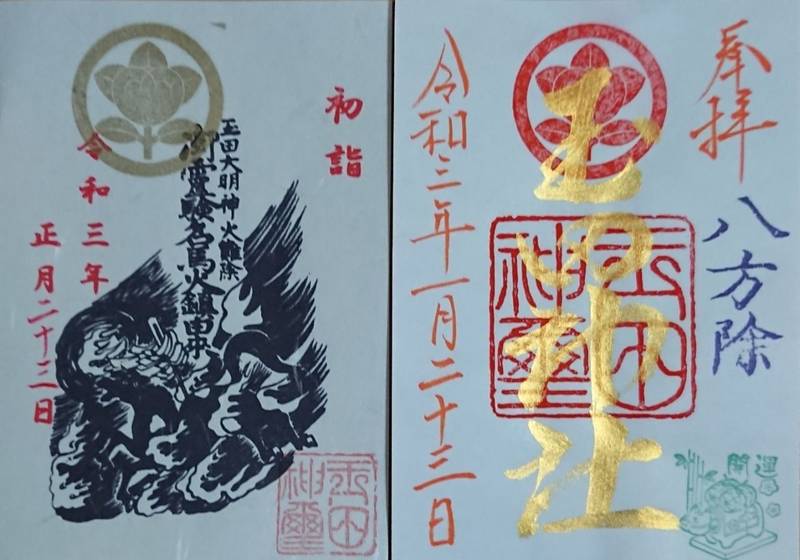 初詣
玉田大明神火難除
名馬火鎮
令和三年
正月二十三日
玉田
神璽
奉拝
八方除
玉田神社
玉田
神璽
令和三年一月二十三日
開運